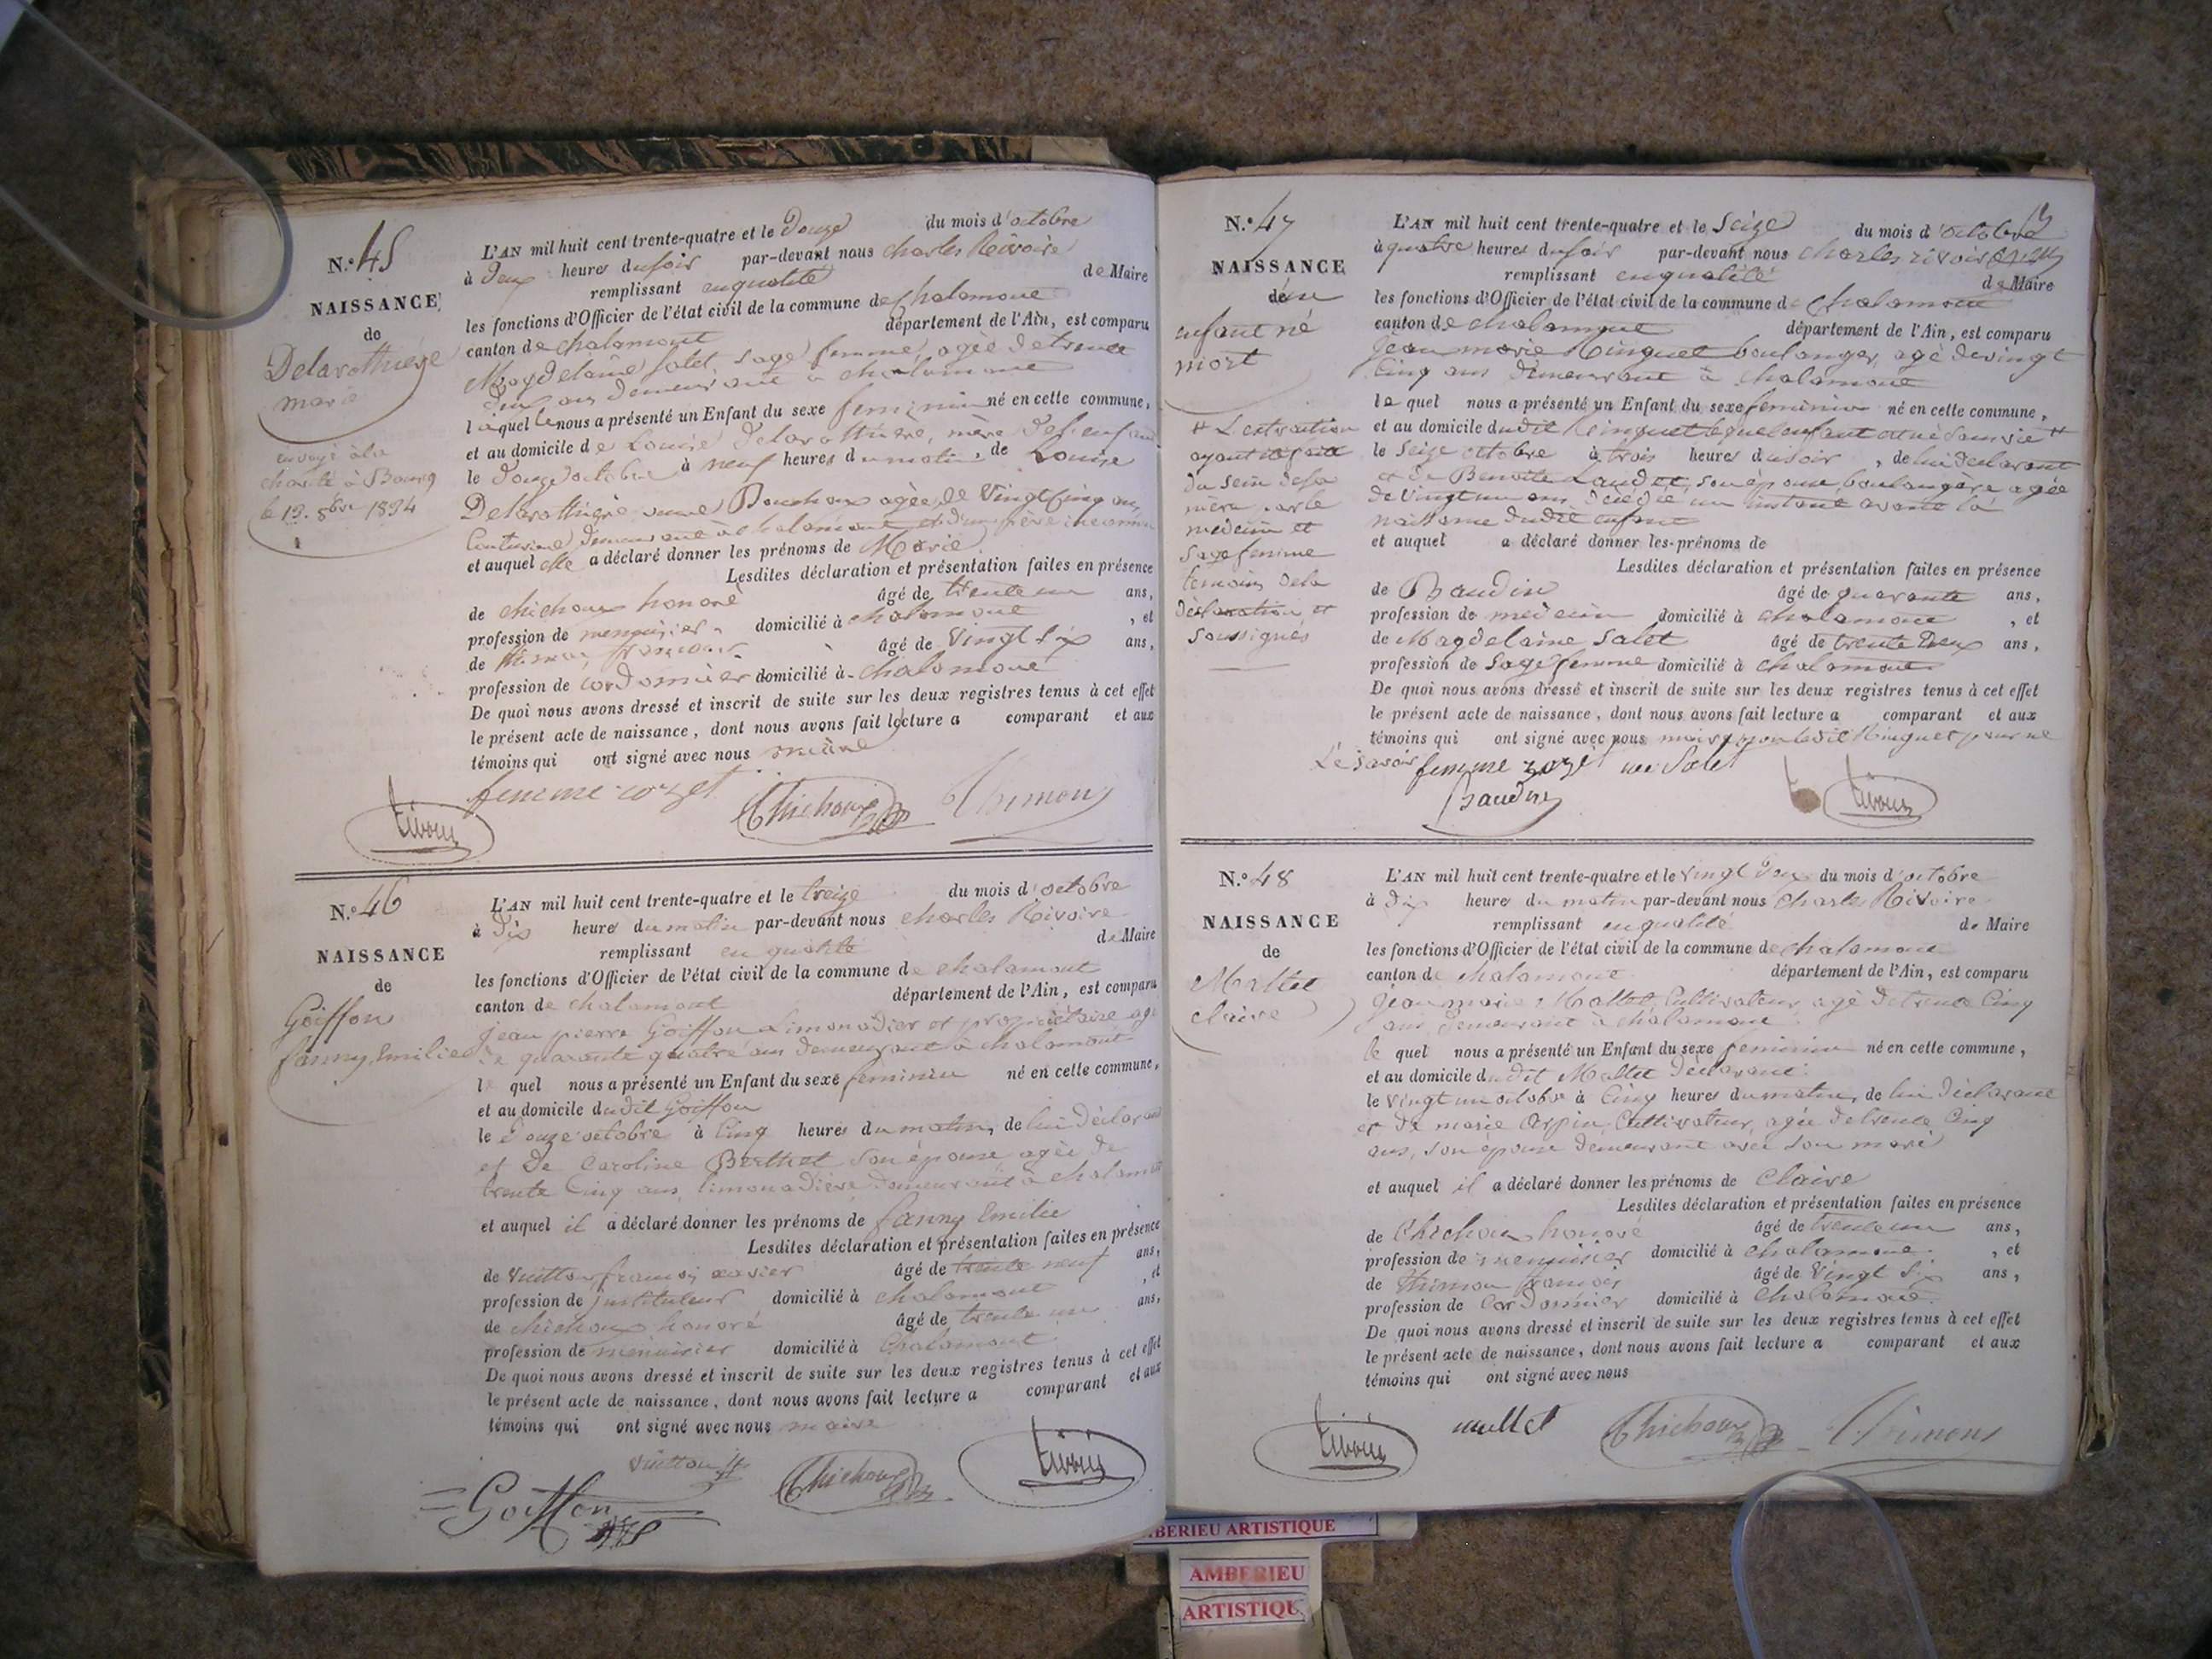 N.o 45
NAISSANCE
de
Delarothière
marie
envoyé à la
charité à Bourg
le 13. 8bre 1834
L'AN mil huit cent trente-quatre et le Douze du mois d'octobre
à Deux heures du soir par-devant nous charles Rivoire
remplissant en qualité de Maire
les fonctions d'Officier de l'état civil de la commune de chalamont
canton de chalamont département de l'Ain, est comparu
Magdelaine salet, sage femme, agée de trente
Deux ans demeurant à chalamont
laquelle nous a présenté un Enfant du sexe feminin né en cette commune,
et au domicile de Louise Delarothière, mère de l'enfant
le Douze octobre à neuf heures du matin, de Louise
Delarothière veuve agée de Vingt Cinq ans,
Couturière demeurant à chalamont et d'un père inconnu
et auquel elle a déclaré donner les prénoms de Marie
Lesdites déclaration et présentation faites en présence
de chichoux honoré âgé de trente un ans,
profession de menuisier domicilié à chalamont, et
de thimon françois âgé de Vingt Six ans,
profession de cordonnier domicilié à chalamont
De quoi nous avons dressé et inscrit de suite sur les deux registres tenus à cet effet
le présent acte de naissance, dont nous avons fait lecture a comparant et aux
témoins qui ont signé avec nous maire
femme
Chichoux Thimon
Rivoire
N.o 46
NAISSANCE
de
Goiffon
fanny, Emilie
L'AN mil huit cent trente-quatre et le treize du mois d'octobre
à Dix heures du matin par-devant nous charles Rivoire
remplissant en qualité de Maire
les fonctions d'Officier de l'état civil de la commune de chalamont
canton de chalamont département de l'Ain, est comparu
jean pierre Goiffon Limonadier et propriétaire agé
de quarante quatre ans demeurant à chalamont
lequel nous a présenté un Enfant du sexe féminin né en cette commune,
et au domicile dudit Goiffon
le Douze octobre à Cinq heures du matin, de lui déclarant
et De Caroline Berthet son épouse agée de
trente Cinq ans, limonadière demeurant à chalamont
et auquel il a déclaré donner les prénoms de fanny Emilie
Lesdites déclaration et présentation faites en présence
de Vuitton françois xavier âgé de trente neuf ans,
profession de jnstituteur domicilié à chalamont, et
de chichoux honoré âgé de trente un ans,
profession de menuisier domicilié à Chalamont
De quoi nous avons dressé et inscrit de suite sur les deux registres tenus à cet effet
le présent acte de naissance, dont nous avons fait lecture a comparant et aux
témoins qui ont signé avec nous maire
Vuitton
Goiffon Chichoux Rivoire
N.o 47
NAISSANCE
de un
enfant né
mort
# L'extraction
ayant été faite
du sein de sa
mère par le
medecin et
sage femme
temoins de la
déclaration et
soussignés
L'AN mil huit cent trente-quatre et le Seize du mois d'octobre
à quatre heures du soir par-devant nous charles rivoire
remplissant en qualité de Maire
les fonctions d'Officier de l'état civil de la commune de Chalamont
canton de chalamont département de l'Ain, est comparu
jean marie Ringuet boulanger, agé de vingt
Cinq ans demeurant à chalamont
lequel nous a présenté un Enfant du sexe feminin né en cette commune,
et au domicile dudit Ringuet lequel enfant est né sans vie #
le Seize octobre à trois heures du soir, de lui déclarant
et de Benoitte Laudet, son épouse, boulangère agée
de Vingt un ans, décédée un instant avant la
naissance dudit enfant
et auquel a déclaré donner les prénoms de
Lesdites déclaration et présentation faites en présence
de Baudin âgé de quarante ans,
profession de medecin domicilié à chalamont, et
de Magdelaine Salet âgé de trente Deux ans,
profession de Sage femme domicilié à chalamont
De quoi nous avons dressé et inscrit de suite sur les deux registres tenus à cet effet
le présent acte de naissance, dont nous avons fait lecture a comparant et aux
témoins qui ont signé avec nous maire non ledit Ringuet pour ne
Le savoir femme née Salet
Baudin Rivoire
N.o 48
NAISSANCE
de
Mallet
claire
L'AN mil huit cent trente-quatre et le vingt Deux du mois d'octobre
à Dix heures du matin par-devant nous Charles Rivoire
remplissant en qualité de Maire
les fonctions d'Officier de l'état civil de la commune de chalamont
canton de chalamont département de l'Ain, est comparu
jean marie Mallet, Cultivateur, agé de trente Cinq
ans, demeurant à chalamont
lequel nous a présenté un Enfant du sexe feminin né en cette commune,
et au domicile dudit Mallet déclarant
le vingt un octobre à Cinq heures du matin, de lui Déclarant
et de marie Carpin Cultivateur, agée de trente Cinq
ans, son épouse demeurant avec son mari
et auquel il a déclaré donner les prénoms de Claire
Lesdites déclaration et présentation faites en présence
de Chichoux honoré âgé de trente un ans,
profession de menuisier domicilié à Chalamont, et
de thimon françois âgé de Vingt Six ans,
profession de Cordonnier domicilié à Chalamont
De quoi nous avons dressé et inscrit de suite sur les deux registres tenus à cet effet
le présent acte de naissance, dont nous avons fait lecture a comparant et aux
témoins qui ont signé avec nous
Rivoire mallet Chichoux Thimon
MBERIEU ARTISTIQUE
AMBERIEU
ARTISTIQU